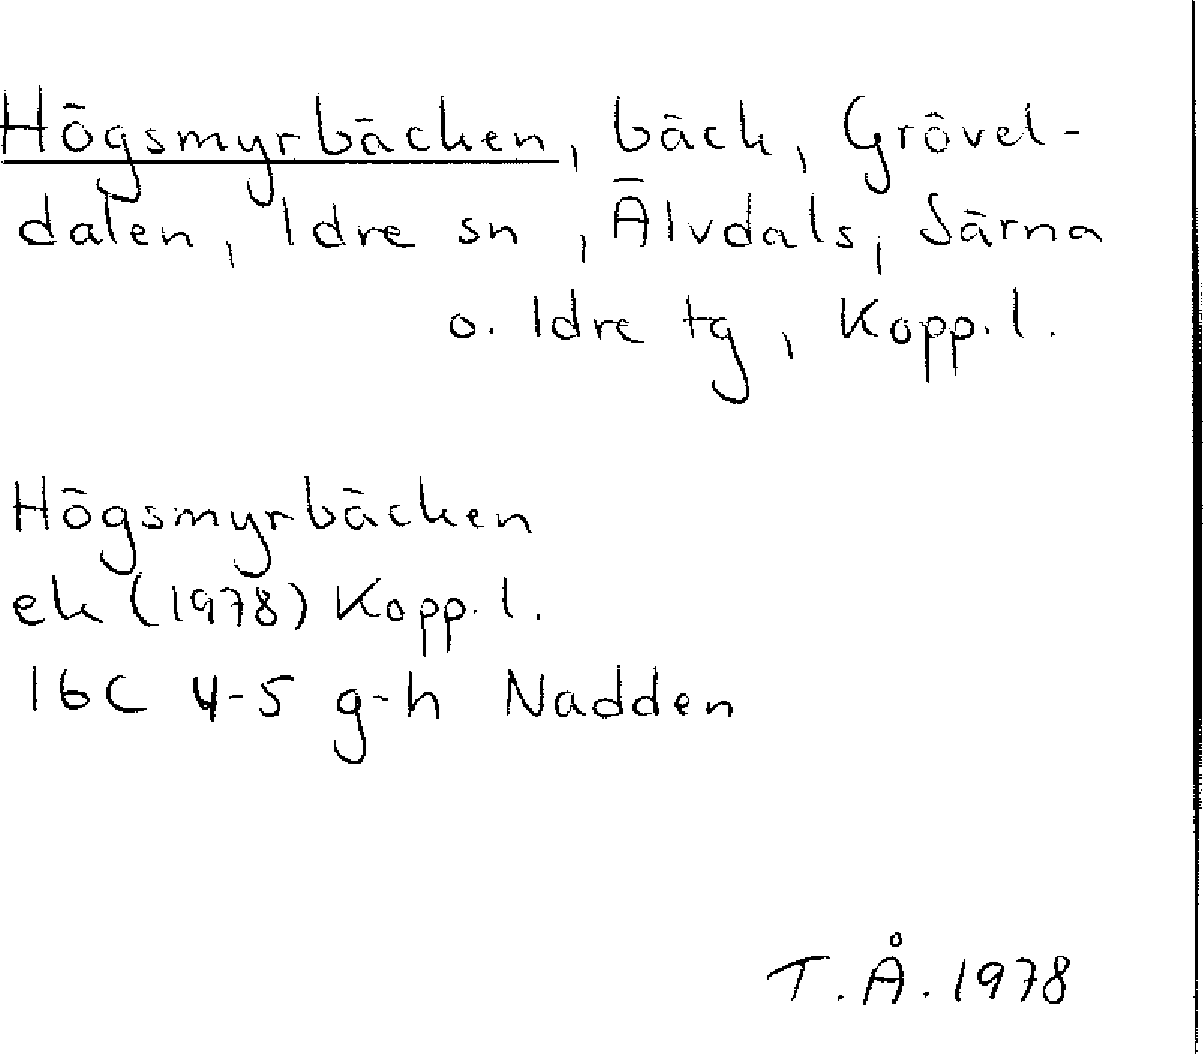 Högsmyrbäcken, bäck, Grövel-
dalen, Idre sn, Älvdals, Särna
o. Idre tg, Kopp. l.
Högsmyrbäcken
ek (1978) Kopp. l.
16C 4-5 g-h Nadden
T. Å. 1978